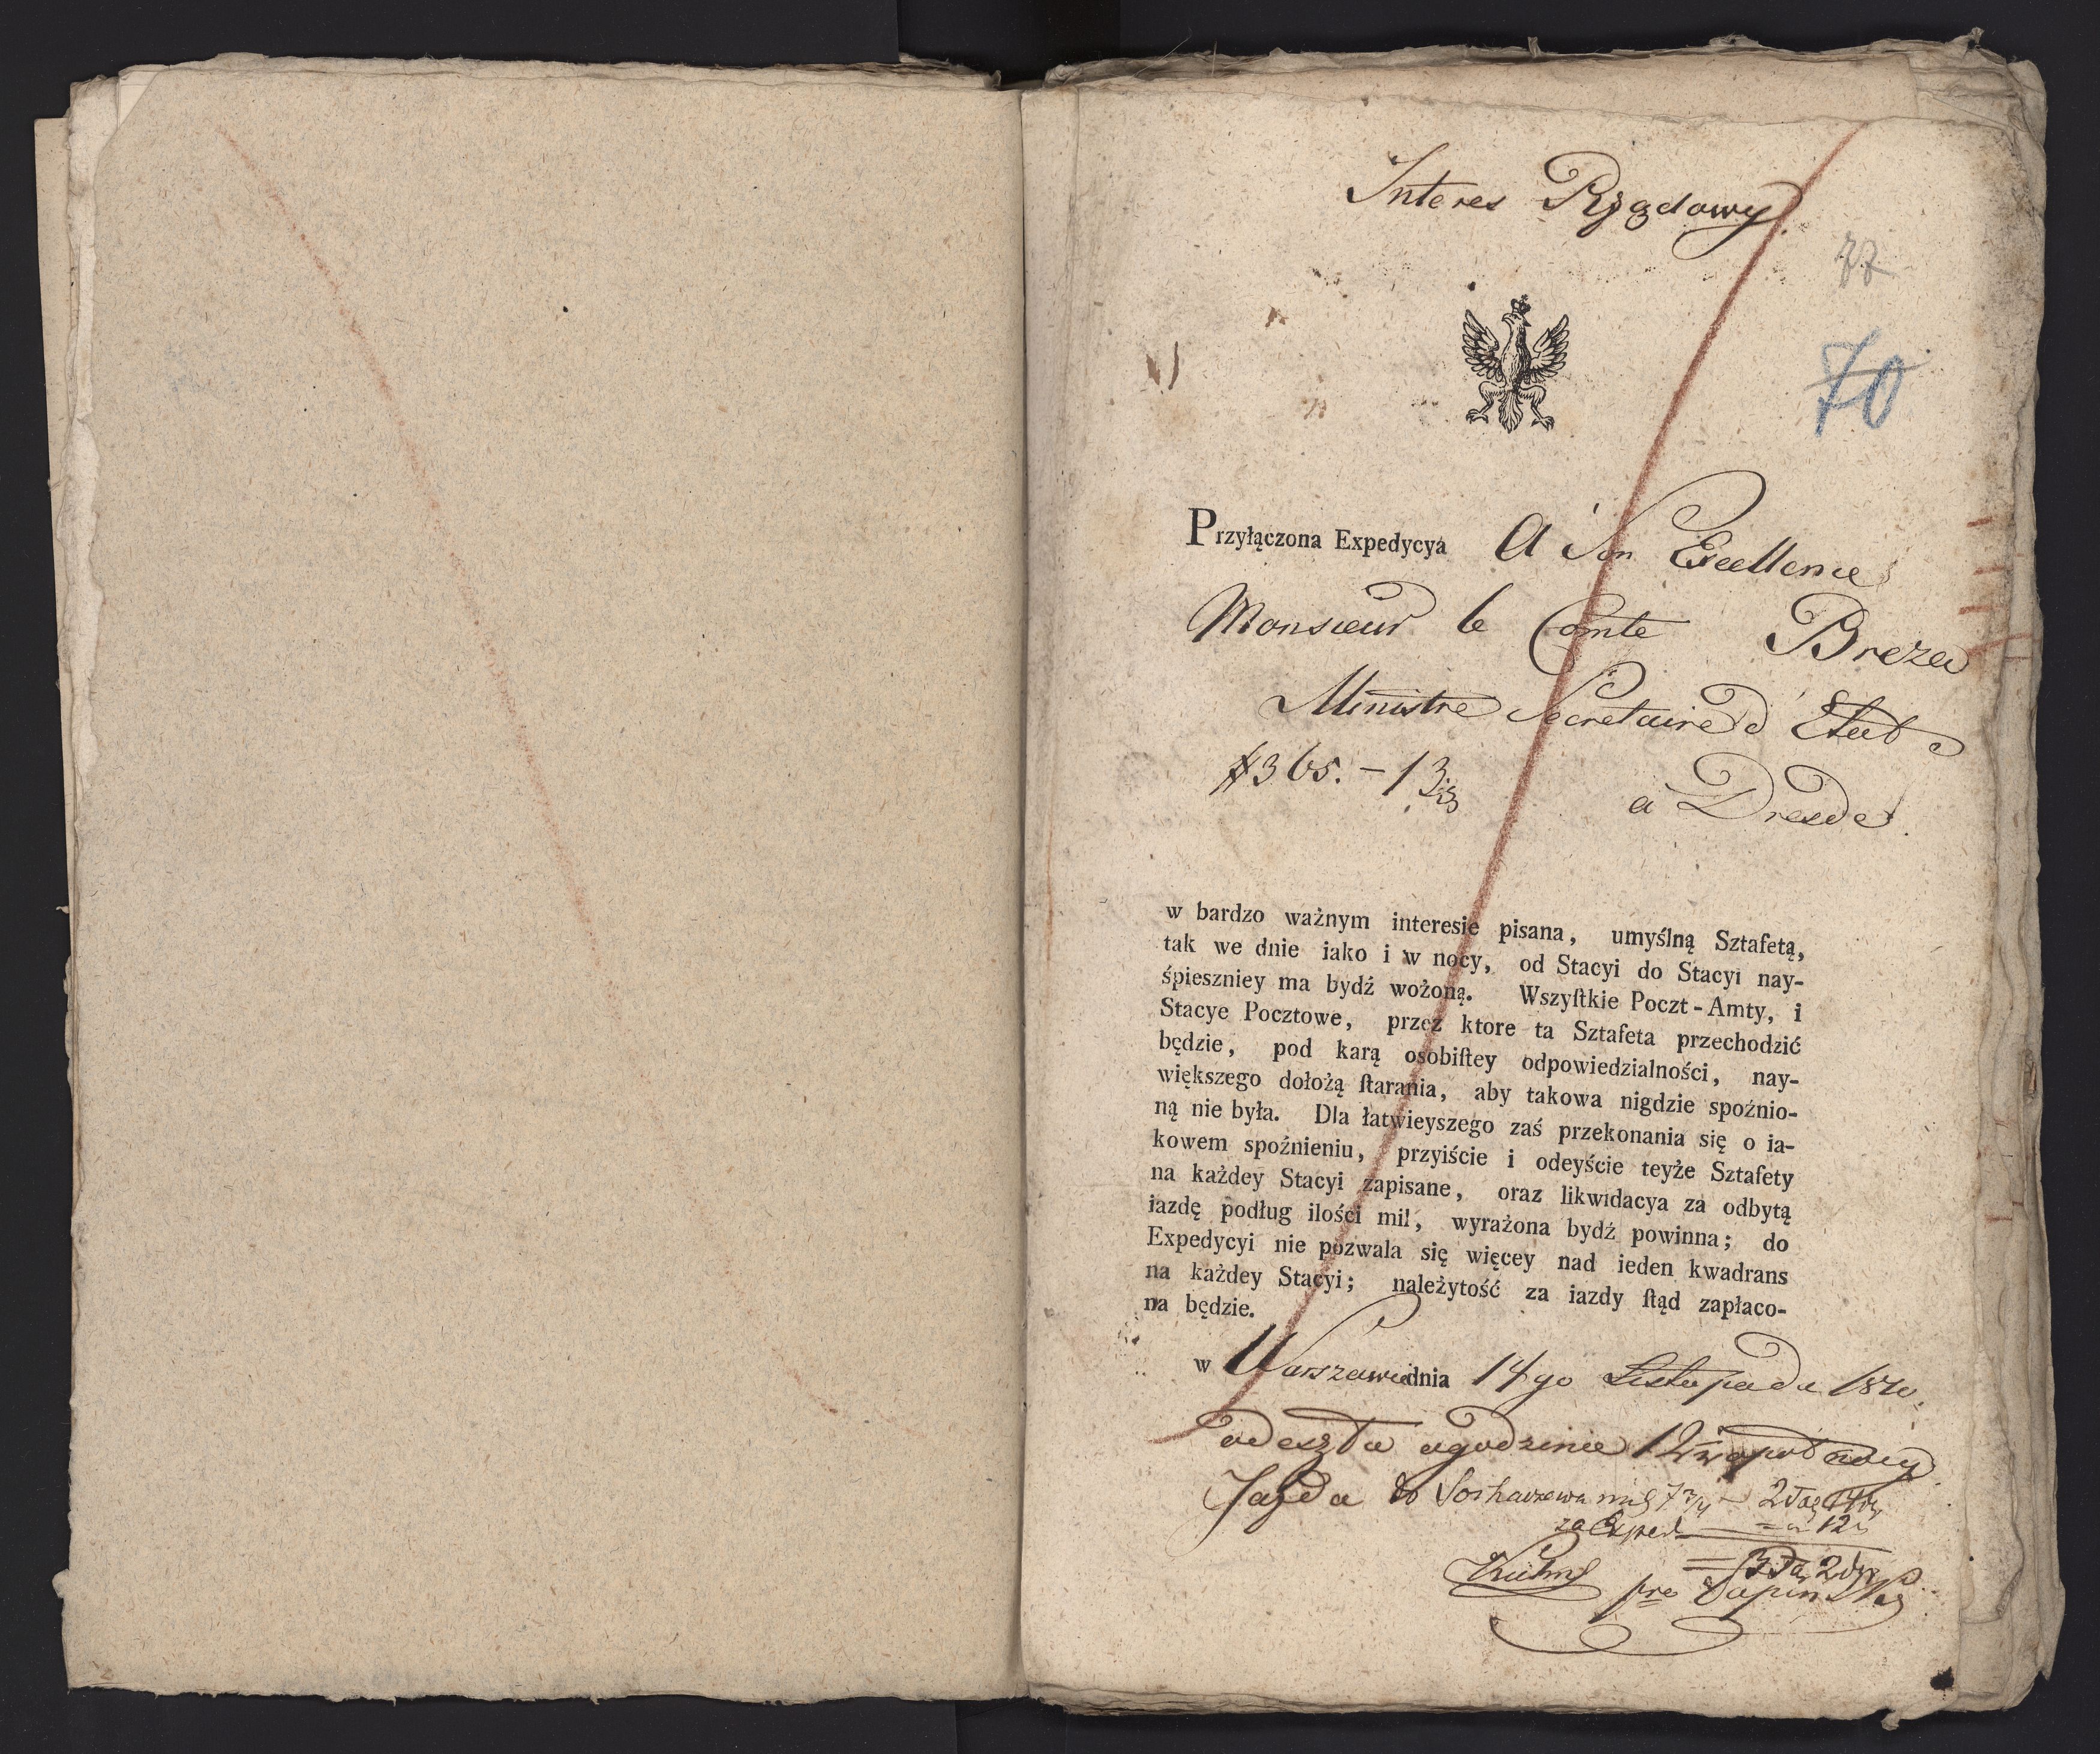 Interes Rządowy.
77
70
Przyłączona Expedycya A Son Excellence
Monsieur le Comte Breza
Ministre Secretaire d'Etat
#365. – 13
a Dresde.
w bardzo ważnym interesie pisana, umyślną Sztafetą,
tak we dnie iako i w nocy, od Stacyi do Stacyi nay-
śpieszniey ma bydź wożoną. Wszyſtkie Poczt-Amty, i
Stacye Pocztowe, przez ktore ta Sztafeta przechodzić
będzie, pod karą osobiſtey odpowiedzialności, nay-
większego dołożą ſtarania, aby takowa nigdzie spoźnio-
ną nie była. Dla łatwieyszego zaś przekonania się o ia-
kowem spoźnieniu, przyiście i odeyście teyże Sztafety
na każdey Stacyi zapisane, oraz likwidacya za odbytą
iazdę podług ilości mil, wyrażona bydź powinna; do
Expedycyi nie pozwala się więcey nad ieden kwadrans
na każdey Stacyi; należytość za iazdy ſtąd zapłaco-
na będzie.
w Warszawie dnia 14go Listopada 1810.
odeszła o godzinie 12 w
Jazda do Sochaczewa mil 7 3/4 – 2
za Exped 12
= 3 2
pro